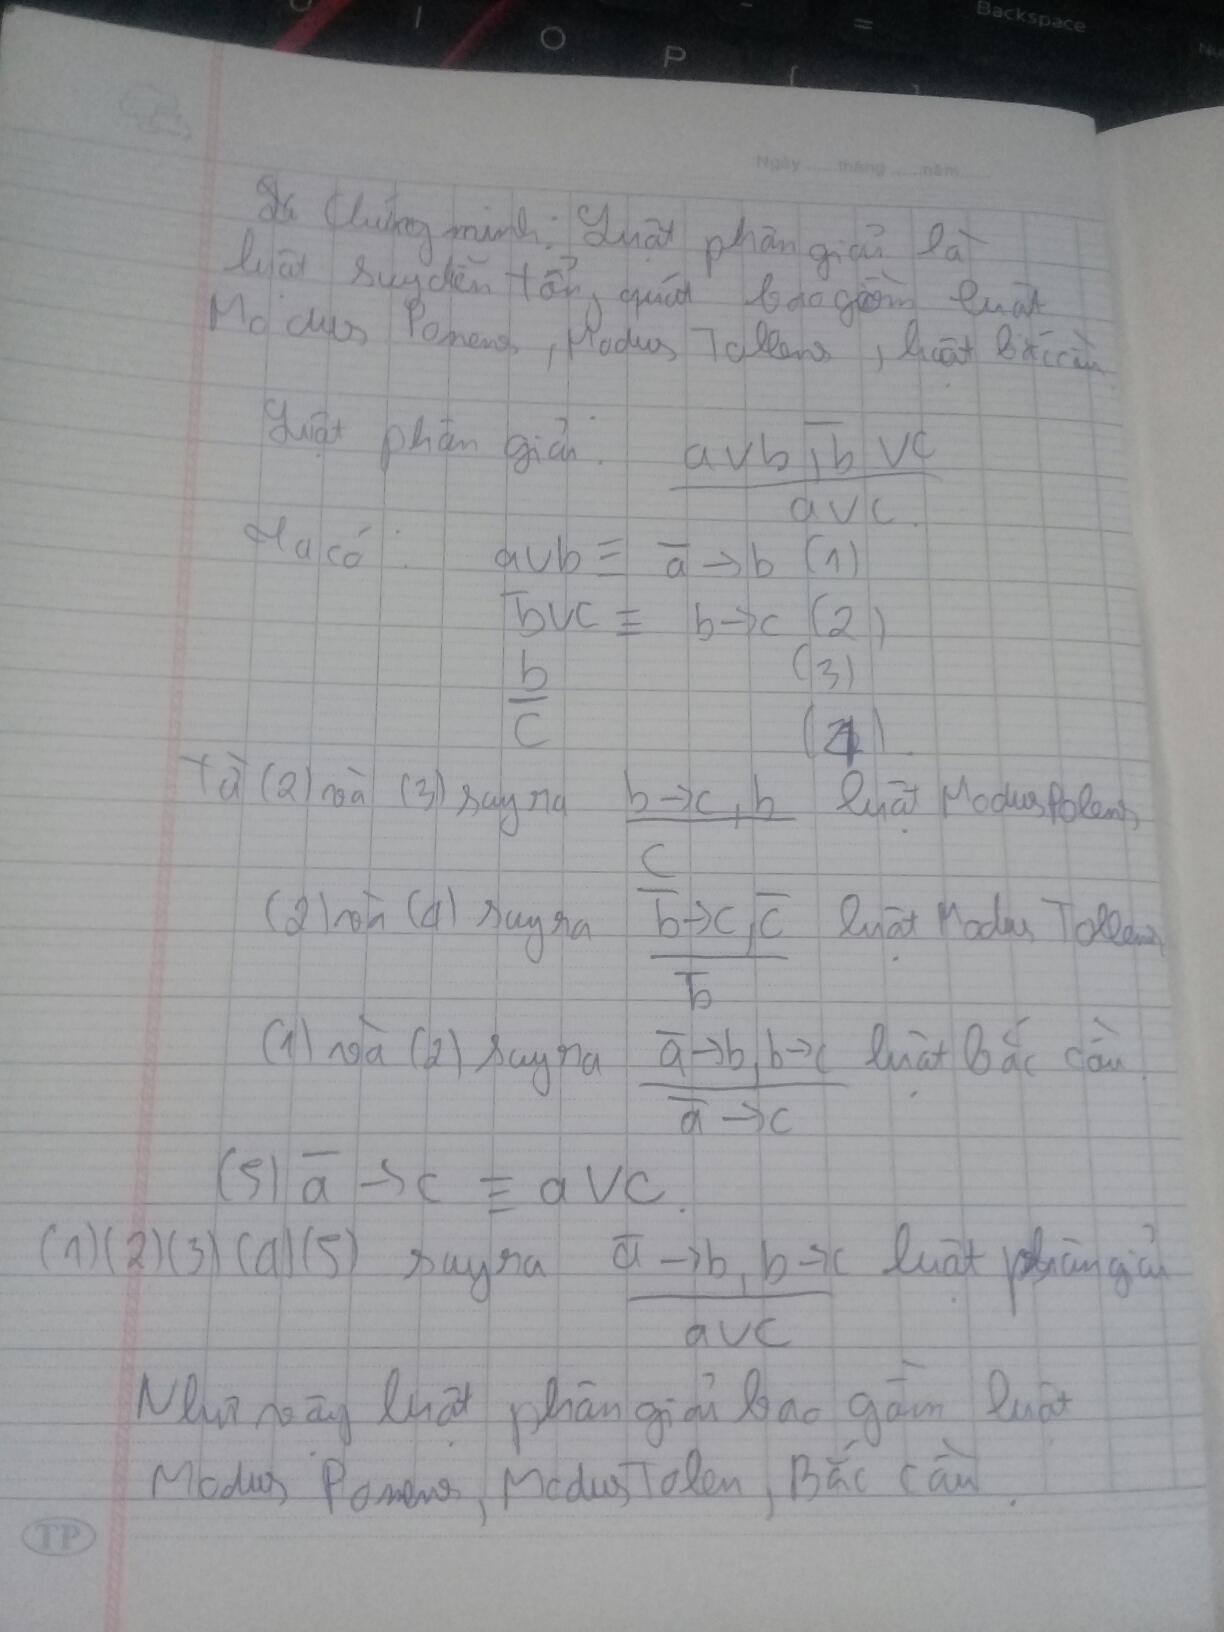 Backspace
O
P
[
=
Ngày ..... tháng ..... năm .....
Chứng minh: Luật phân giải là
luật suy diễn tổng quát bao gồm luật
Modus Ponens, Modus Tollens, luật bắc cầu
Luật phân giải: a∨b, b̅∨c
a∨c.
Ta có: a∨b ≡ a̅→b (1)
b̅∨c ≡ b→c (2)
b (3)
c̅ (4).
Từ (2) và (3) suy ra b→c, b luật Modus Polens
c
(2) và (4) suy ra b̅→c, c̅ luật Modus Tollens
b̅
(1) và (2) suy ra a̅→b, b→c luật bắc cầu
a̅→c
(5) a̅→c ≡ a∨c.
(1)(2)(3)(4)(5) suy ra a̅→b, b→c luật phân giải
a∨c
Như vậy luật phân giải bao gồm luật
Modus Ponens, Modus Tolen, Bắc cầu.
TP